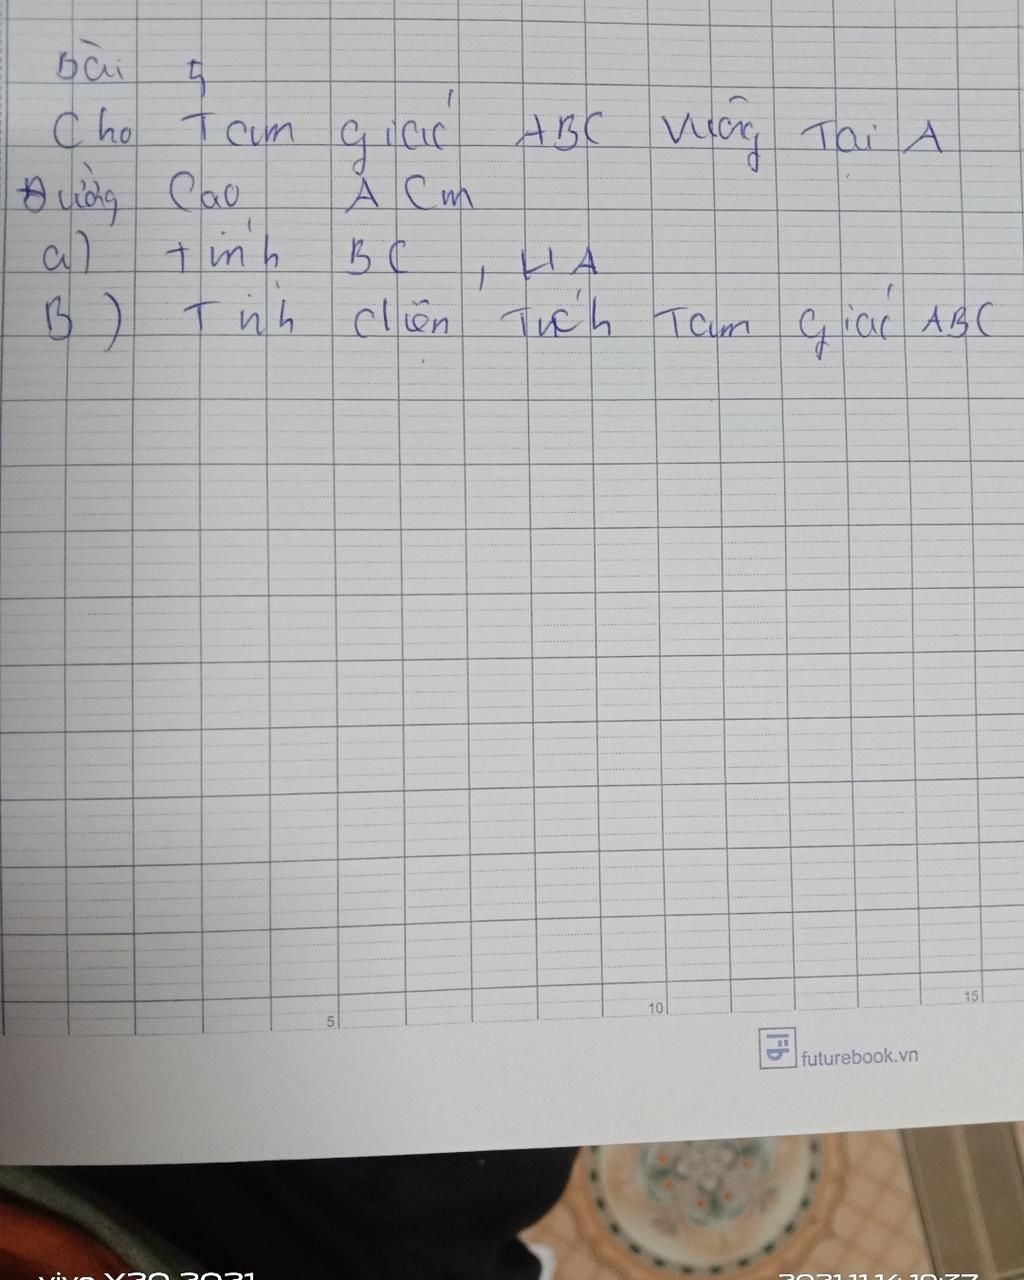 Bài 5
Cho Tam giác ABC Vuông Tại A
Đường Cao A Cm
a) tính BC , HA
B) Tính diện Tích Tam giác ABC
5 10 15
futurebook.vn
vivo X20 2021